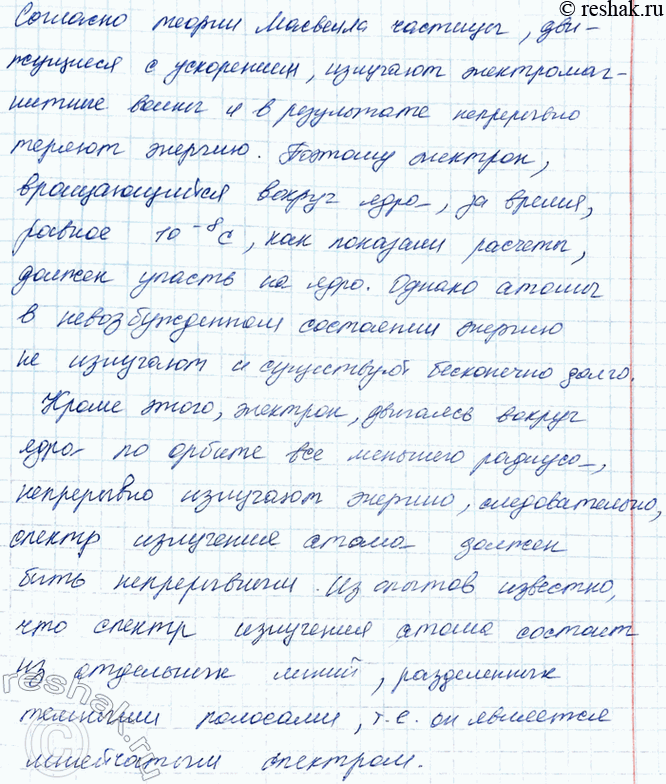 © reshak.ru
Согласно теории Максвелла частицы, дви-
жущиеся с ускорением, излучают электромаг-
нитные волны и в результате непрерывно
теряют энергию. Поэтому электрон,
вращающийся вокруг ядра, за время,
равное 10⁻⁸с, как показали расчеты,
должен упасть на ядро. Однако атомы
в невозбужденном состоянии энергию
не излучают и существуют бесконечно долго.
Кроме этого, электрон, двигаясь вокруг
ядра по орбите все меньшего радиуса,
непрерывно излучают энергию, следовательно,
спектр излучения атома должен
быть непрерывным. Из опытов известно,
что спектр излучения атома состоит
из отдельных линий, разделенных
темными полосами, т.е. он является
линейчатым спектром.
© reshak.ru